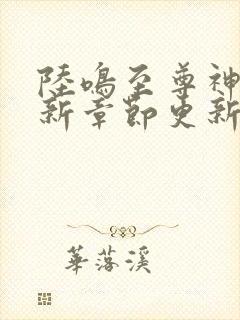 陸鳴至尊神
新章節更新
華落溪